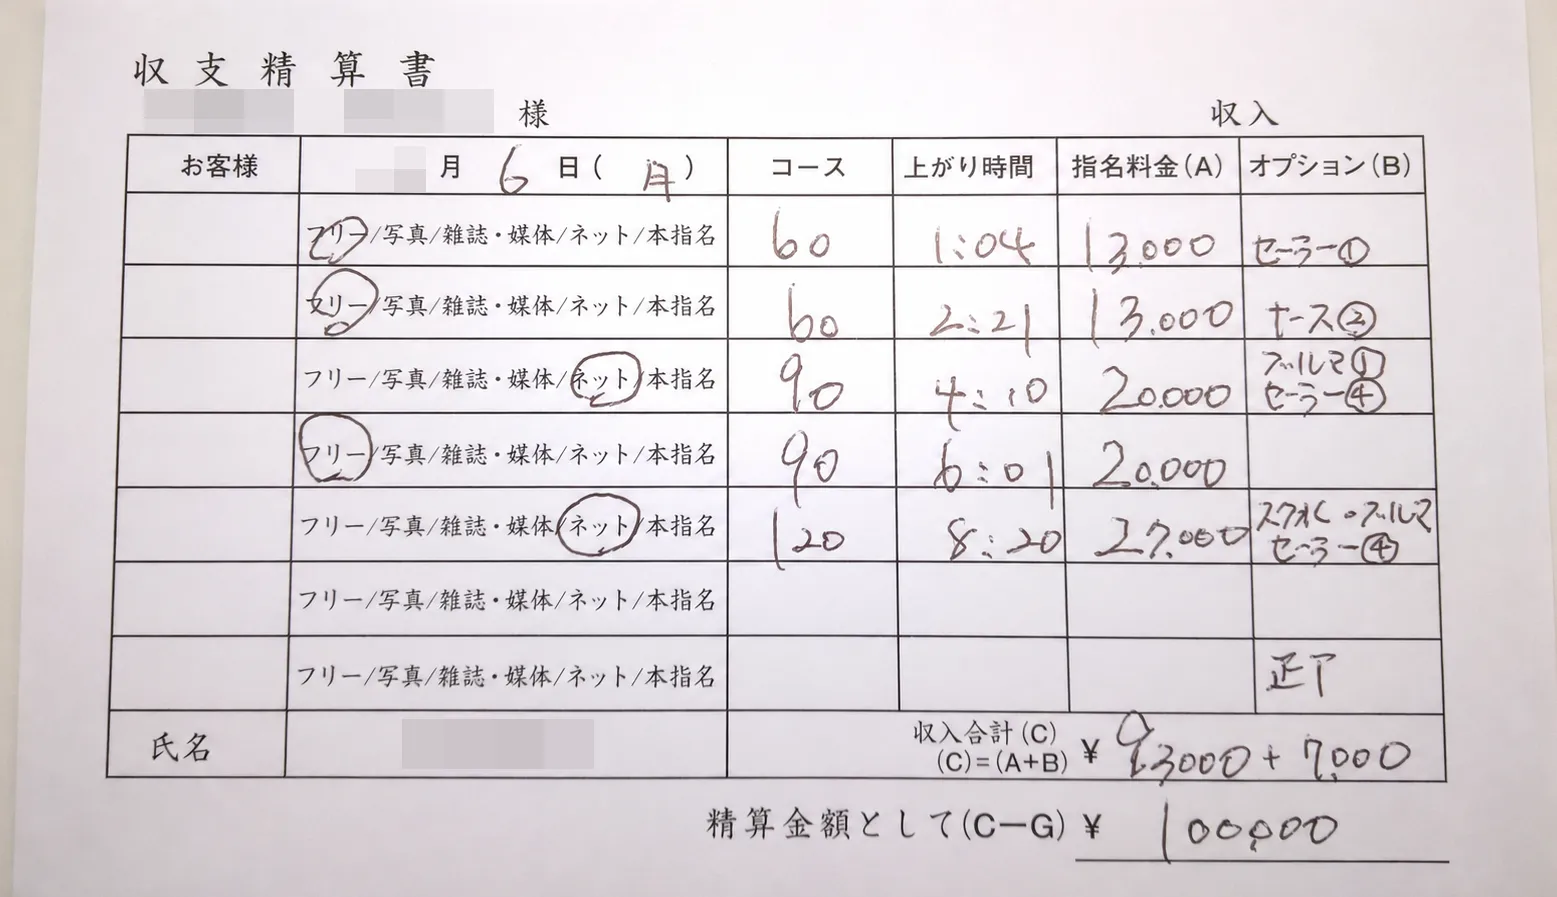 収支精算書
様 収入
お客様 月 6 日( 月 ) コース 上がり時間 指名料金(A) オプション(B)
フリー/写真/雑誌・媒体/ネット/本指名 60 1:04 13.000 セーラー①
フリー/写真/雑誌・媒体/ネット/本指名 60 2:21 13.000 ナース②
フリー/写真/雑誌・媒体/ネット/本指名 90 4:10 20.000 ブルマ①
セーラー④
フリー/写真/雑誌・媒体/ネット/本指名 90 6:01 20.000
フリー/写真/雑誌・媒体/ネット/本指名 120 8:20 27.000 スクール・ブルマ
セーラー④
フリー/写真/雑誌・媒体/ネット/本指名
フリー/写真/雑誌・媒体/ネット/本指名 正丅
氏名 収入合計(C)
(C)=(A+B) ¥ 93000+7.000
精算金額として(C−G) ¥ 100.000